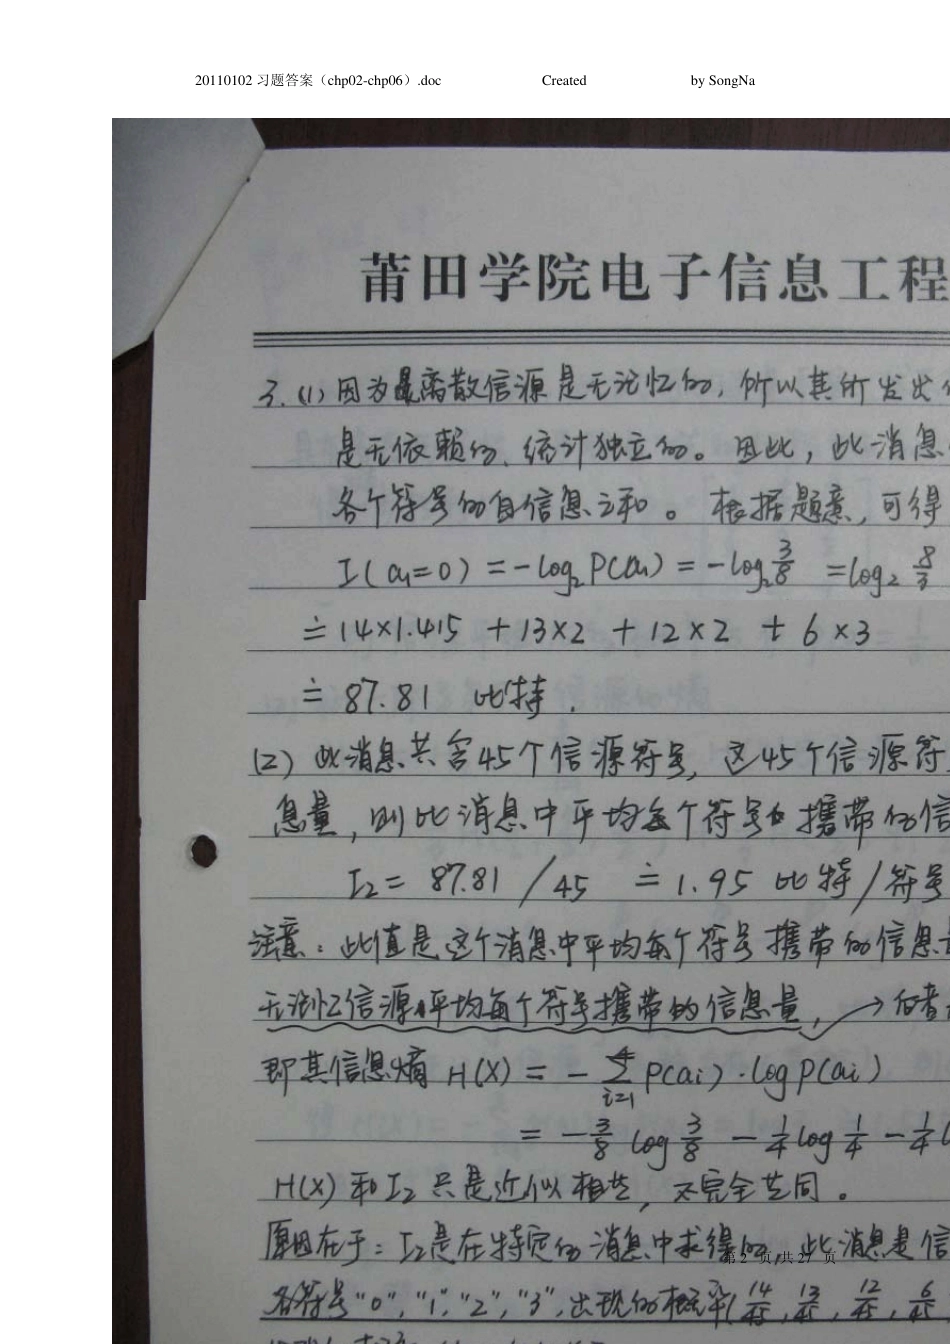 20110102 习题答案（chp02-chp06）.doc Created by SongNa
莆田学院电子信息工程
3. (1) 因为离散信源是无记忆的, 所以其所发出
是无依赖的、统计独立的。因此, 此消息
各个符号的自信息之和。根据题意, 可得
I(a₁=0) = -log₂P(a₁) = -log₂ 3/8 = log₂ 8/3
≐ 14×1.415 + 13×2 + 12×2 + 6×3
≐ 87.81 比特.
(2) 此消息共含45个信源符号, 这45个信源符
息量, 则此消息中平均每个符号携带的信
I₂ = 87.81 / 45 ≐ 1.95 比特/符号
注意: 此值是这个消息中平均每个符号携带的信息
无记忆信源平均每个符号携带的信息量, → 后者
即其信息熵 H(X) = - 4∑i=1 P(ai)·logP(ai)
= - 3/8 log 3/8 - 1/4 log 1/4 - 1/4
H(X) 和 I₂ 只是近似相等, 不完全等同。
原因在于: I₂是在特定的消息中求得的, 此消息是信
第 2 页 共 27 页
各符号"0", "1", "2", "3", 出现的概率( 14/45, 13/45, 12/45, 6/45